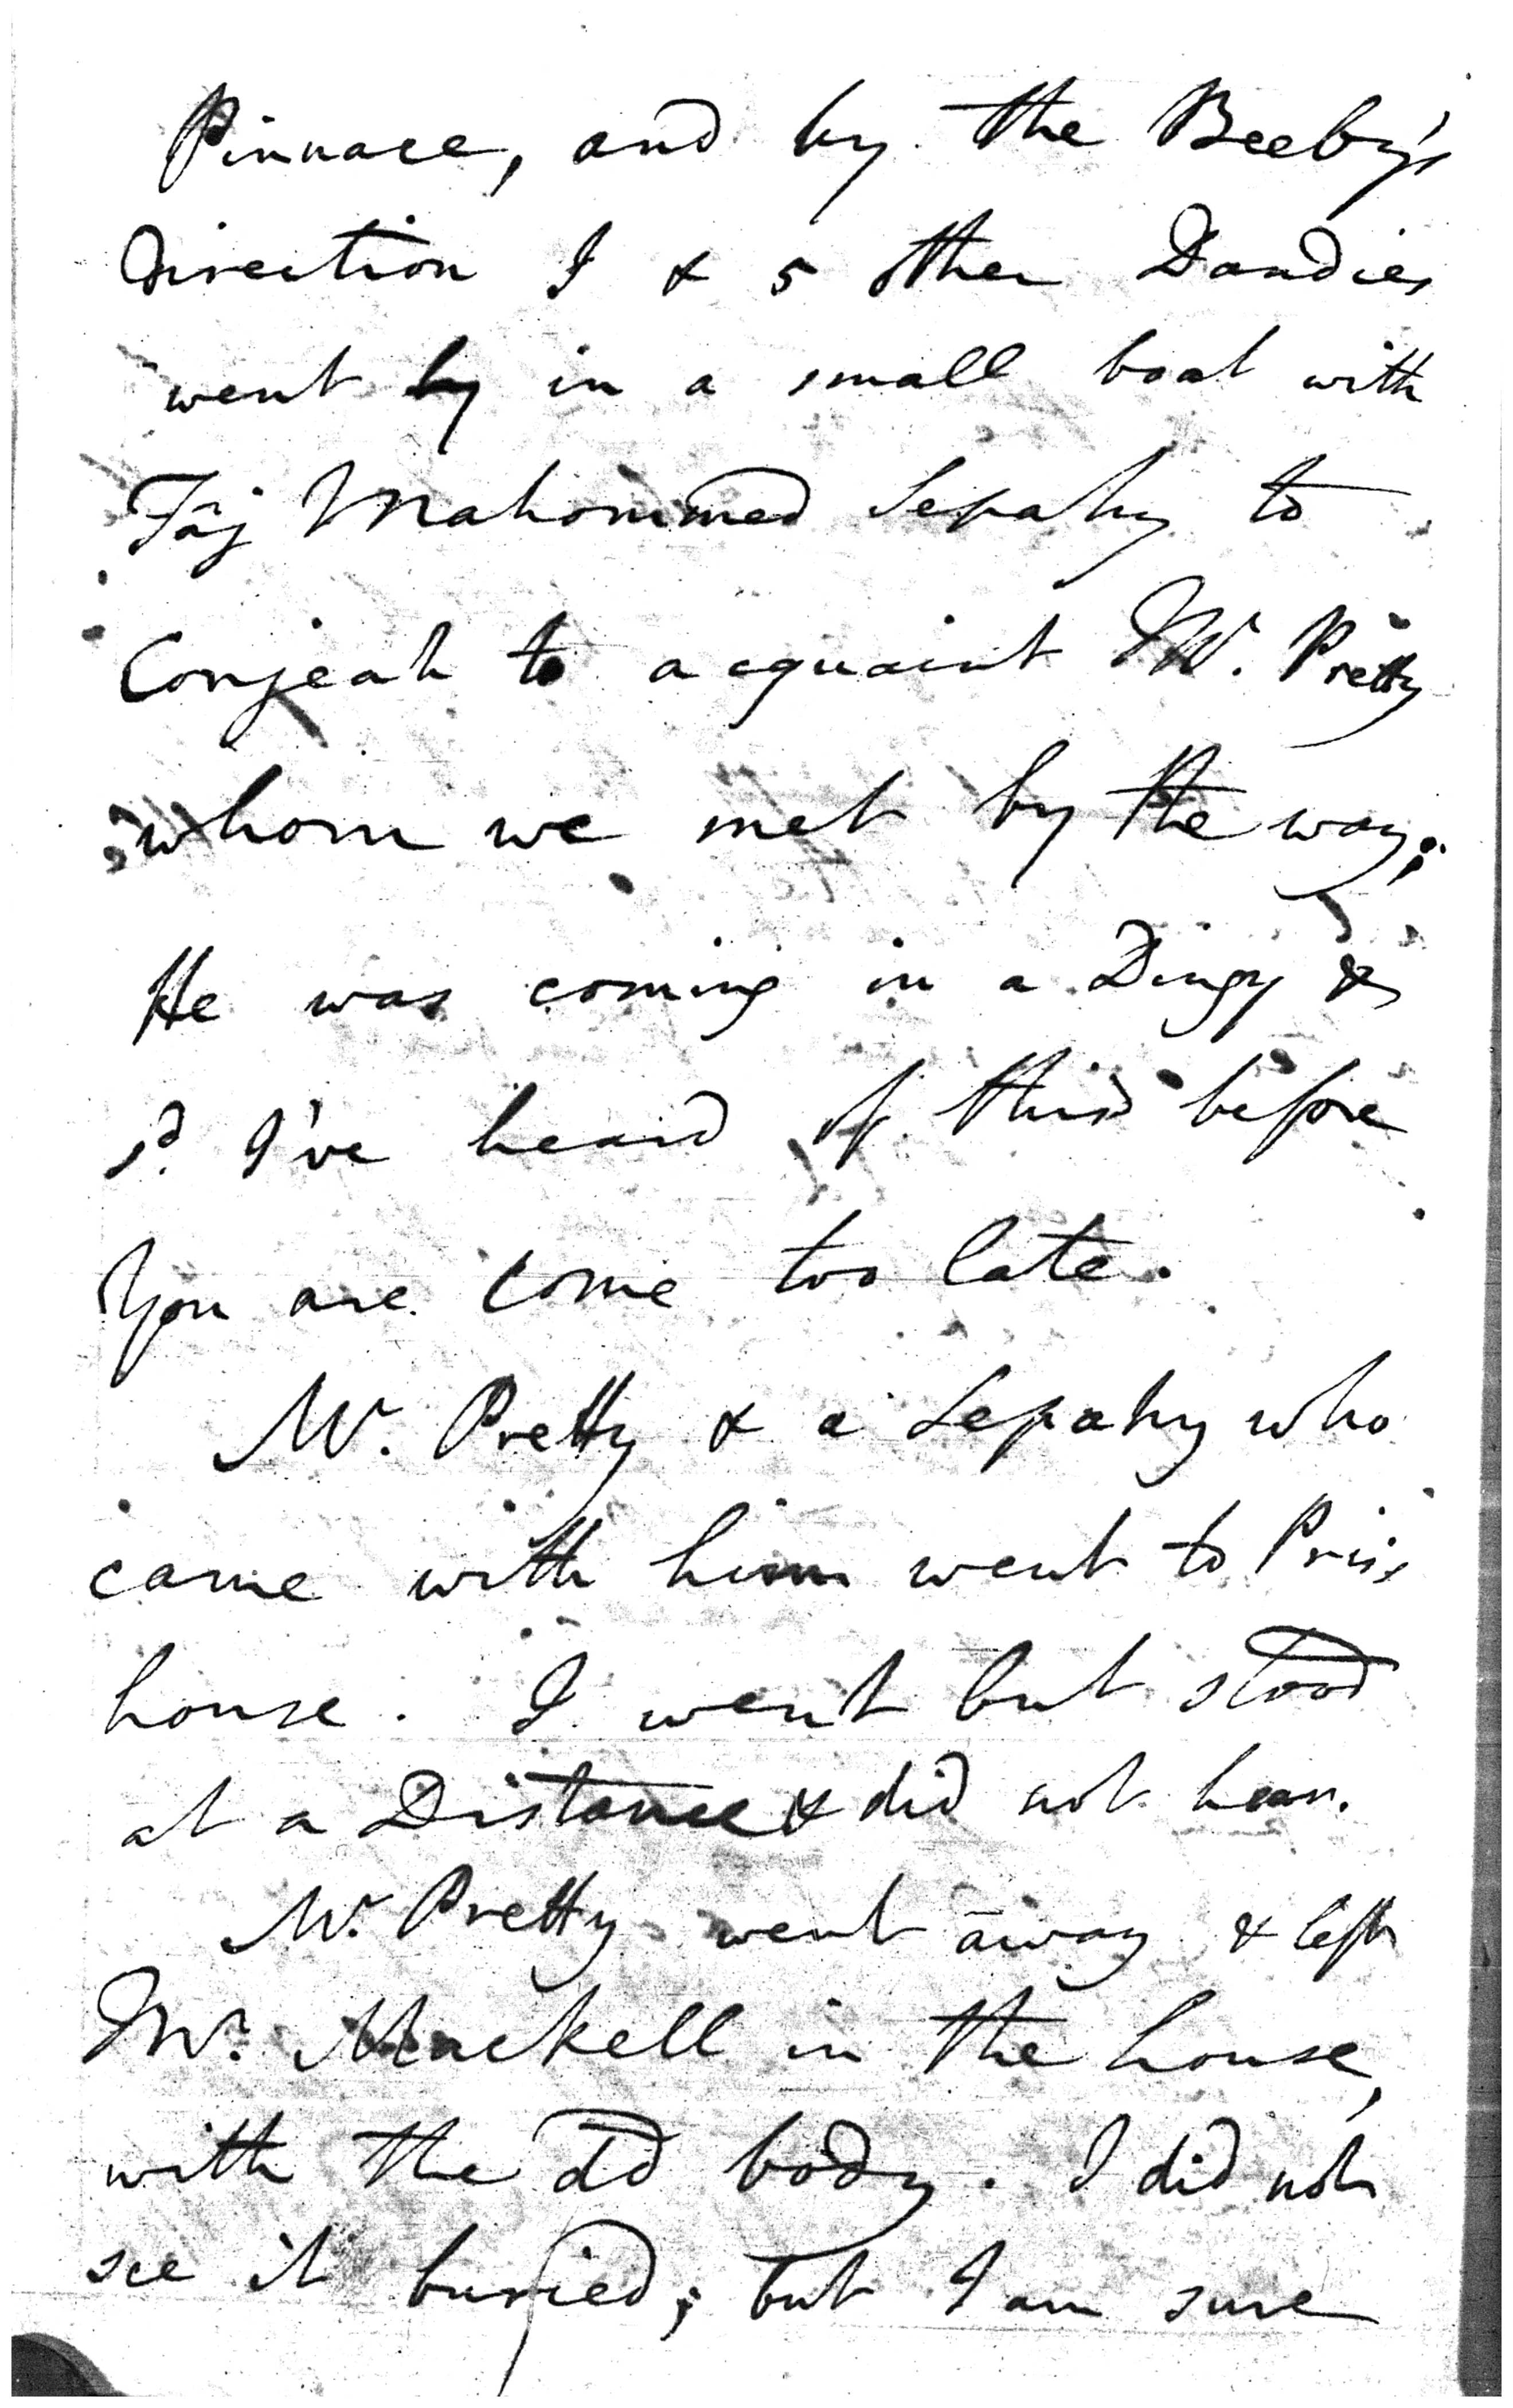 Pinnace, and by the Beeby's
Direction I & 5 other Dandies
went by in a small boat with
Tâj Mahommed Sepahy to
Conjeah to acquaint Mr. Pretty
whom we met by the way;
He was coming in a Dingy &
sd. I've heard of this before
You are come too late.
Mr. Pretty & a Sepahy who
came with him went to Pris
house. I went but stood
at a Distance & did not hear.
Mr. Pretty went away & left
Mr. Mackell in the house,
with the dd body. I did not
see it buried; but I am sure